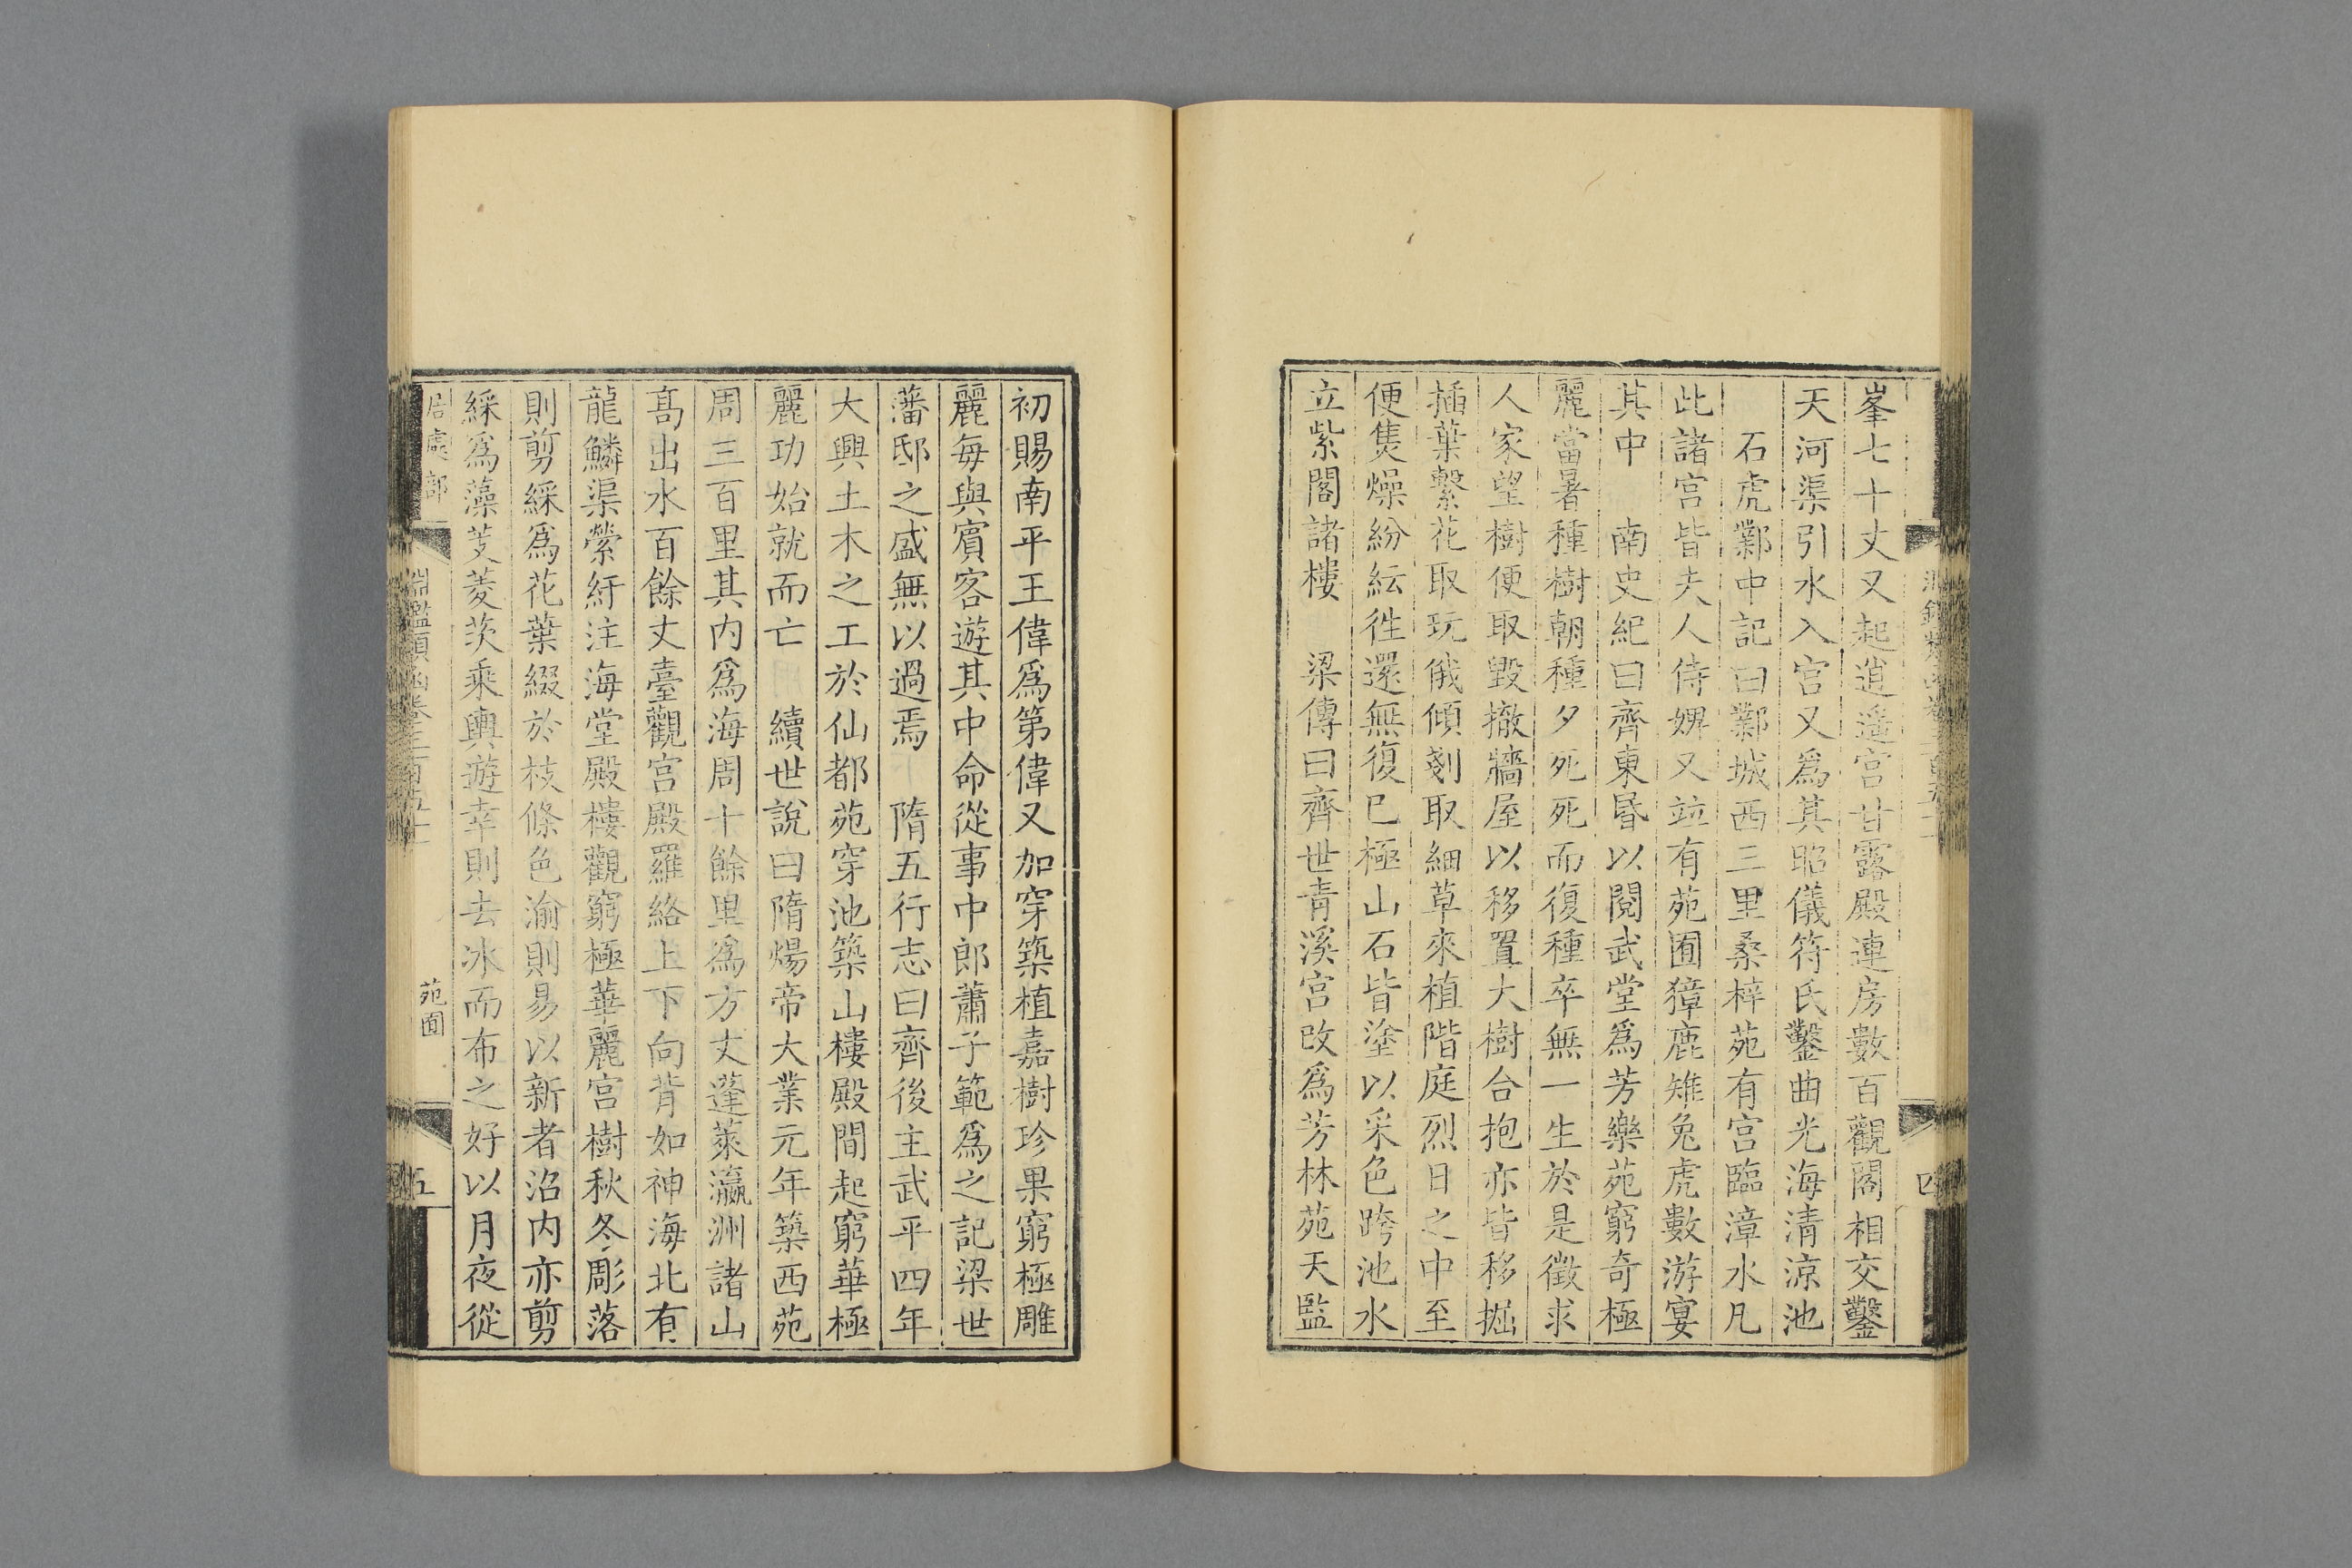 峯七十丈又起逍遥宫甘露殿連房數百觀閣相交鑿
天河渠引水入宫又爲其昭儀符氏鑿曲光海清涼池
石虎鄴中記曰鄴城西三里桑梓苑有宫臨漳水凡
此諸宫皆夫人侍婢又竝有苑囿獐鹿雉兔虎數游宴
其中 南史紀曰齊東昬以閱武堂爲芳樂苑窮奇極
麗當暑種樹朝種夕死死而復種卒無一生於是徵求
人家望樹便取毀撤牆屋以移置大樹合抱亦皆移掘
插葉繫花取玩俄傾剗取細草來植階庭烈日之中至
便焦燥紛紜徃還無復已極山石皆塗以采色跨池水
立紫閣諸樓 梁傳曰齊世青溪宫改爲芳林苑天監
四
初賜南平王偉爲第偉又加穿築植嘉樹珍果窮極雕
麗每與賓客遊其中命從事中郎蕭子範爲之記梁世
藩邸之盛無以過焉 隋五行志曰齊後主武平四年
大興土木之工於仙都苑穿池築山樓殿間起窮華極
麗功始就而亡 續世說曰隋煬帝大業元年築西苑
周三百里其内爲海周十餘里爲方丈蓬萊瀛洲諸山
高出水百餘丈臺觀宫殿羅絡上下向背如神海北有
龍鱗渠縈紆注海堂殿樓觀窮極華麗宫樹秋冬彫落
則剪綵爲花葉綴於枝條色渝則易以新者沼内亦剪
綵爲藻芰菱茨乘輿遊幸則去冰而布之好以月夜從
居處部
淵鑑類函卷三百五十
苑囿
五